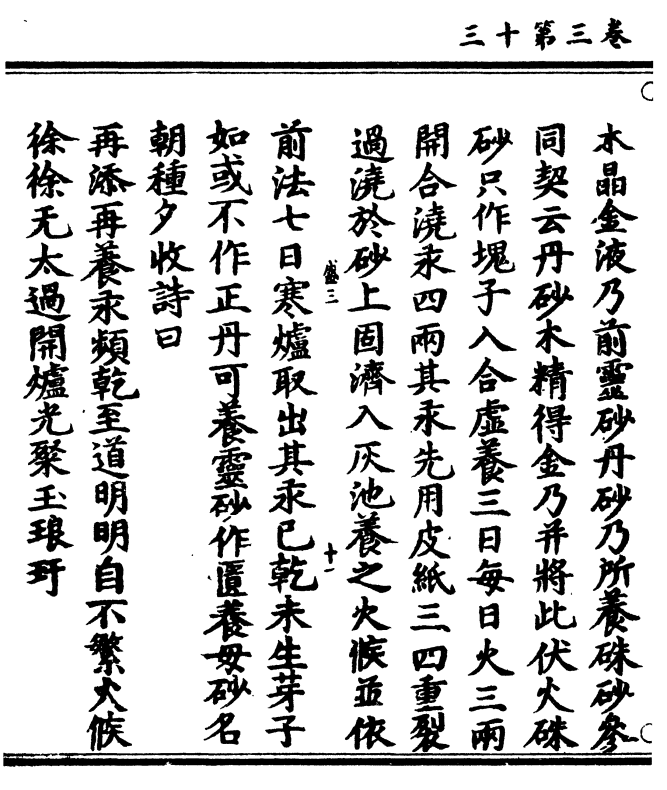 三十第三卷
水晶金液乃前靈砂丹砂乃所養硃砂參
同契云丹砂木精得金乃并將此伏火硃
砂只作塊子入合虛養三日每日火三兩
開合澆汞四兩其汞先用皮紙三四重裂
過澆於砂上固濟入灰池養之火候並依
盛三
十一
前法七日寒爐取出其汞已乾未生芽子
如或不作正丹可養靈砂作匱養母砂名
朝種夕收詩曰
再添再養汞頻乾至道明明自不繁火候
徐徐无太過開爐光聚玉琅玕